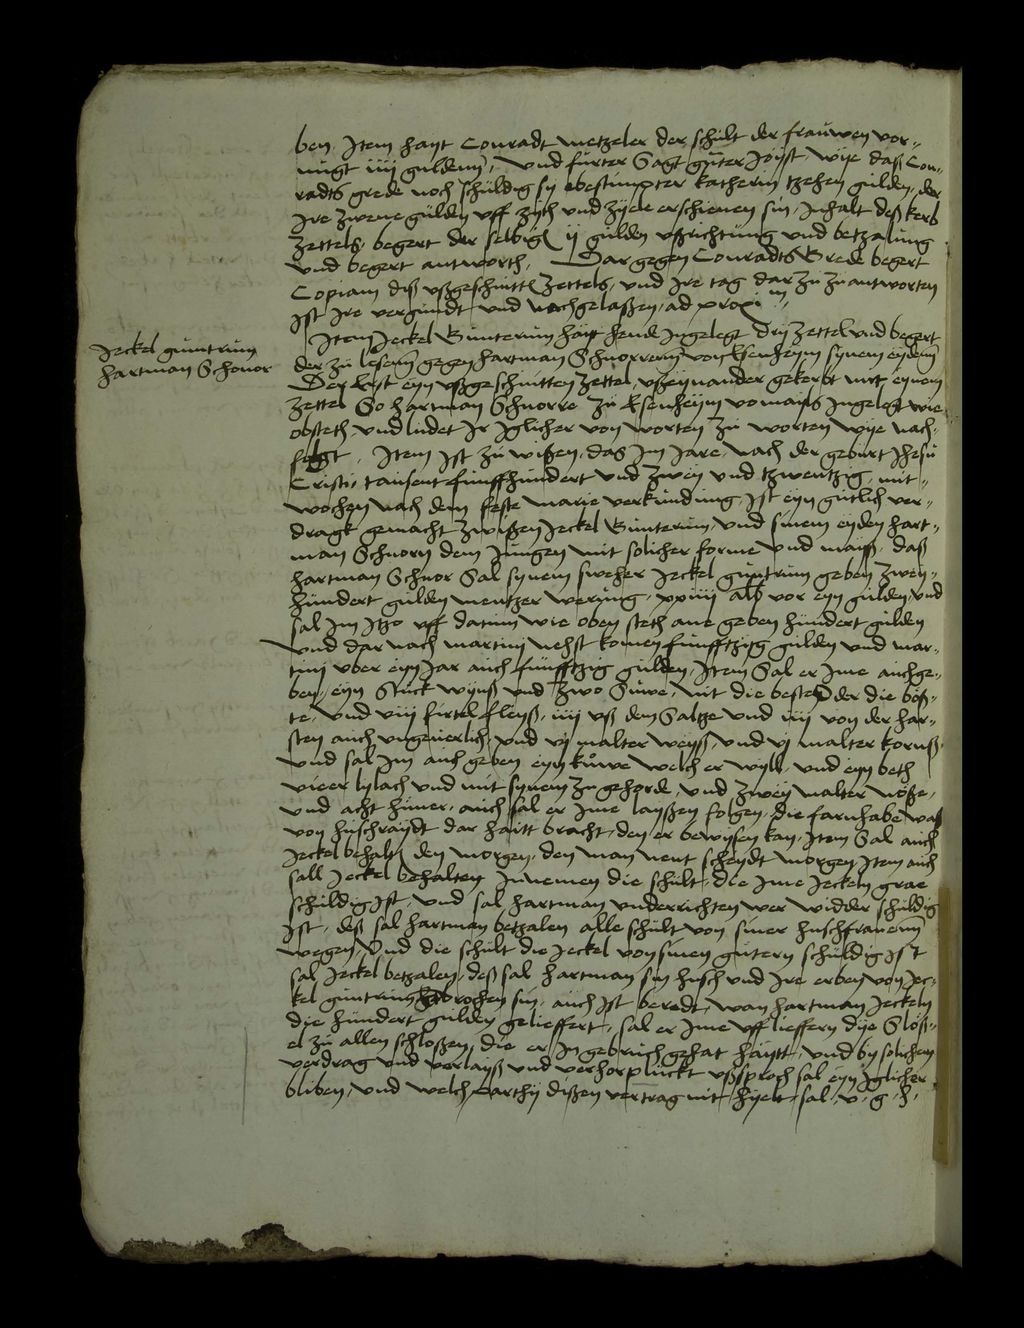 ben Item hait Conradt metzeler der schult der frauwen vor-
nugt iiij gulden, und furter Sagt guter Joist wije daß Con-
radts grede noch schuldig sy obestimpter katherin tzehen gulden, der
Ire zwene gulden uff zijth und zijele erschienen sin, Inhalt deß kerb
Zettels, begert der selbigen ij gulden ußrichtung und betzalung
und begert antworth, Dar gegen Conradts Grede begert
Copiam diß ußgeschnitten zettels, und Ire tag dar zu zu antworten
Ist Ire vergundt und nachgelaßen, ad proxim
Jeckel guntrum
hartman Schonor
Item Jeckel Gunterum hait Ingelegt drij zettel und begert
der zu lesenn gegen hartman Schnorren von Esenheym synem eyden
Der Eyst eyn ußgeschnitten zettel, ußeynander gekerbt mit eynem
zettel So hartman Schnorre zu Esenheym vomails Ingelegt wie
obsteth, und ludet Ir Iglicher von worten zu worten wije nach-
folgt, Item Ist zu wißen, das Im Jare, nach der geburt Jhesu
Cristi, tausent funffhundert und zwey und tzwentzig, mit-
wochen nach dem feste marie verkundung, Ist eyn gutlich ver-
dragk gemacht zwißen Jeckel Gunterum, und sinem eyden hart-
man Schnorn dem Jungen mit solicher forme und maiß, daß
hartman Schnor Sal synem sweher Jeckel guntrum geben zwey-
hundert gulden mentzer werung, xxiiij alb vor eyn gulden, und
sal Im Itzo uff datum wie oben steth ane geben hundert gulden
und dar nach martini nehst komen funfftzig gulden und mar-
tini uber eyn Jar auch funfftzig gulden, Item Sal er Ime auch ge-
ben, eyn Stuck wynß und zwo Suwe, nit die besten Oder die boß-
te, und viij firtel fleyß, iiij uß dem Saltze und iiij von der har-
sten auch ungeuerlich, und vj malter weyß, und vj malter kornß
und sal Im auch geben eyn kuwe welch er wyll, und eyn beth
vieer lylach und mit synem zugehorde, und zwey malter nosße,
und acht huner, auch sal er Ime laißen folgen, die farnhabe, waß
von hußraydt dar haitt bracht, den er bewysen kan, Item Sal auch
Jeckel behalten den morgen, den man nent scheydt morgen Item auch
sall Jeckel behalten Innemen die schult, die Ime Jeckeln grae
schuldig Ist, und sal hartman underrichten wer widder schuldig
Ist, deß sal hartman betzalen alle schult von siner hußfrauwen
wegen, Und die schult die Jeckel von sinen gutern schuldig Ist
sal Jeckel betzalen, deß sal hartman sin husch und Ire erben von Jec-
kel guntrum gebrochen sin, auch Ist beredt, wan hartman Jeckeln
die hundert gulden gelieffert, sal er Ime uff lieffern dije Sloß-
el zu allen schloßen, die er In gebruch gehat haytt, und by solichem
verdrag und verlayß und verhorpluckt ußsproch sal eyn Iglicher
bliben, und welch parthij dißen vertrag nit hyelt, sal, v, g, h,